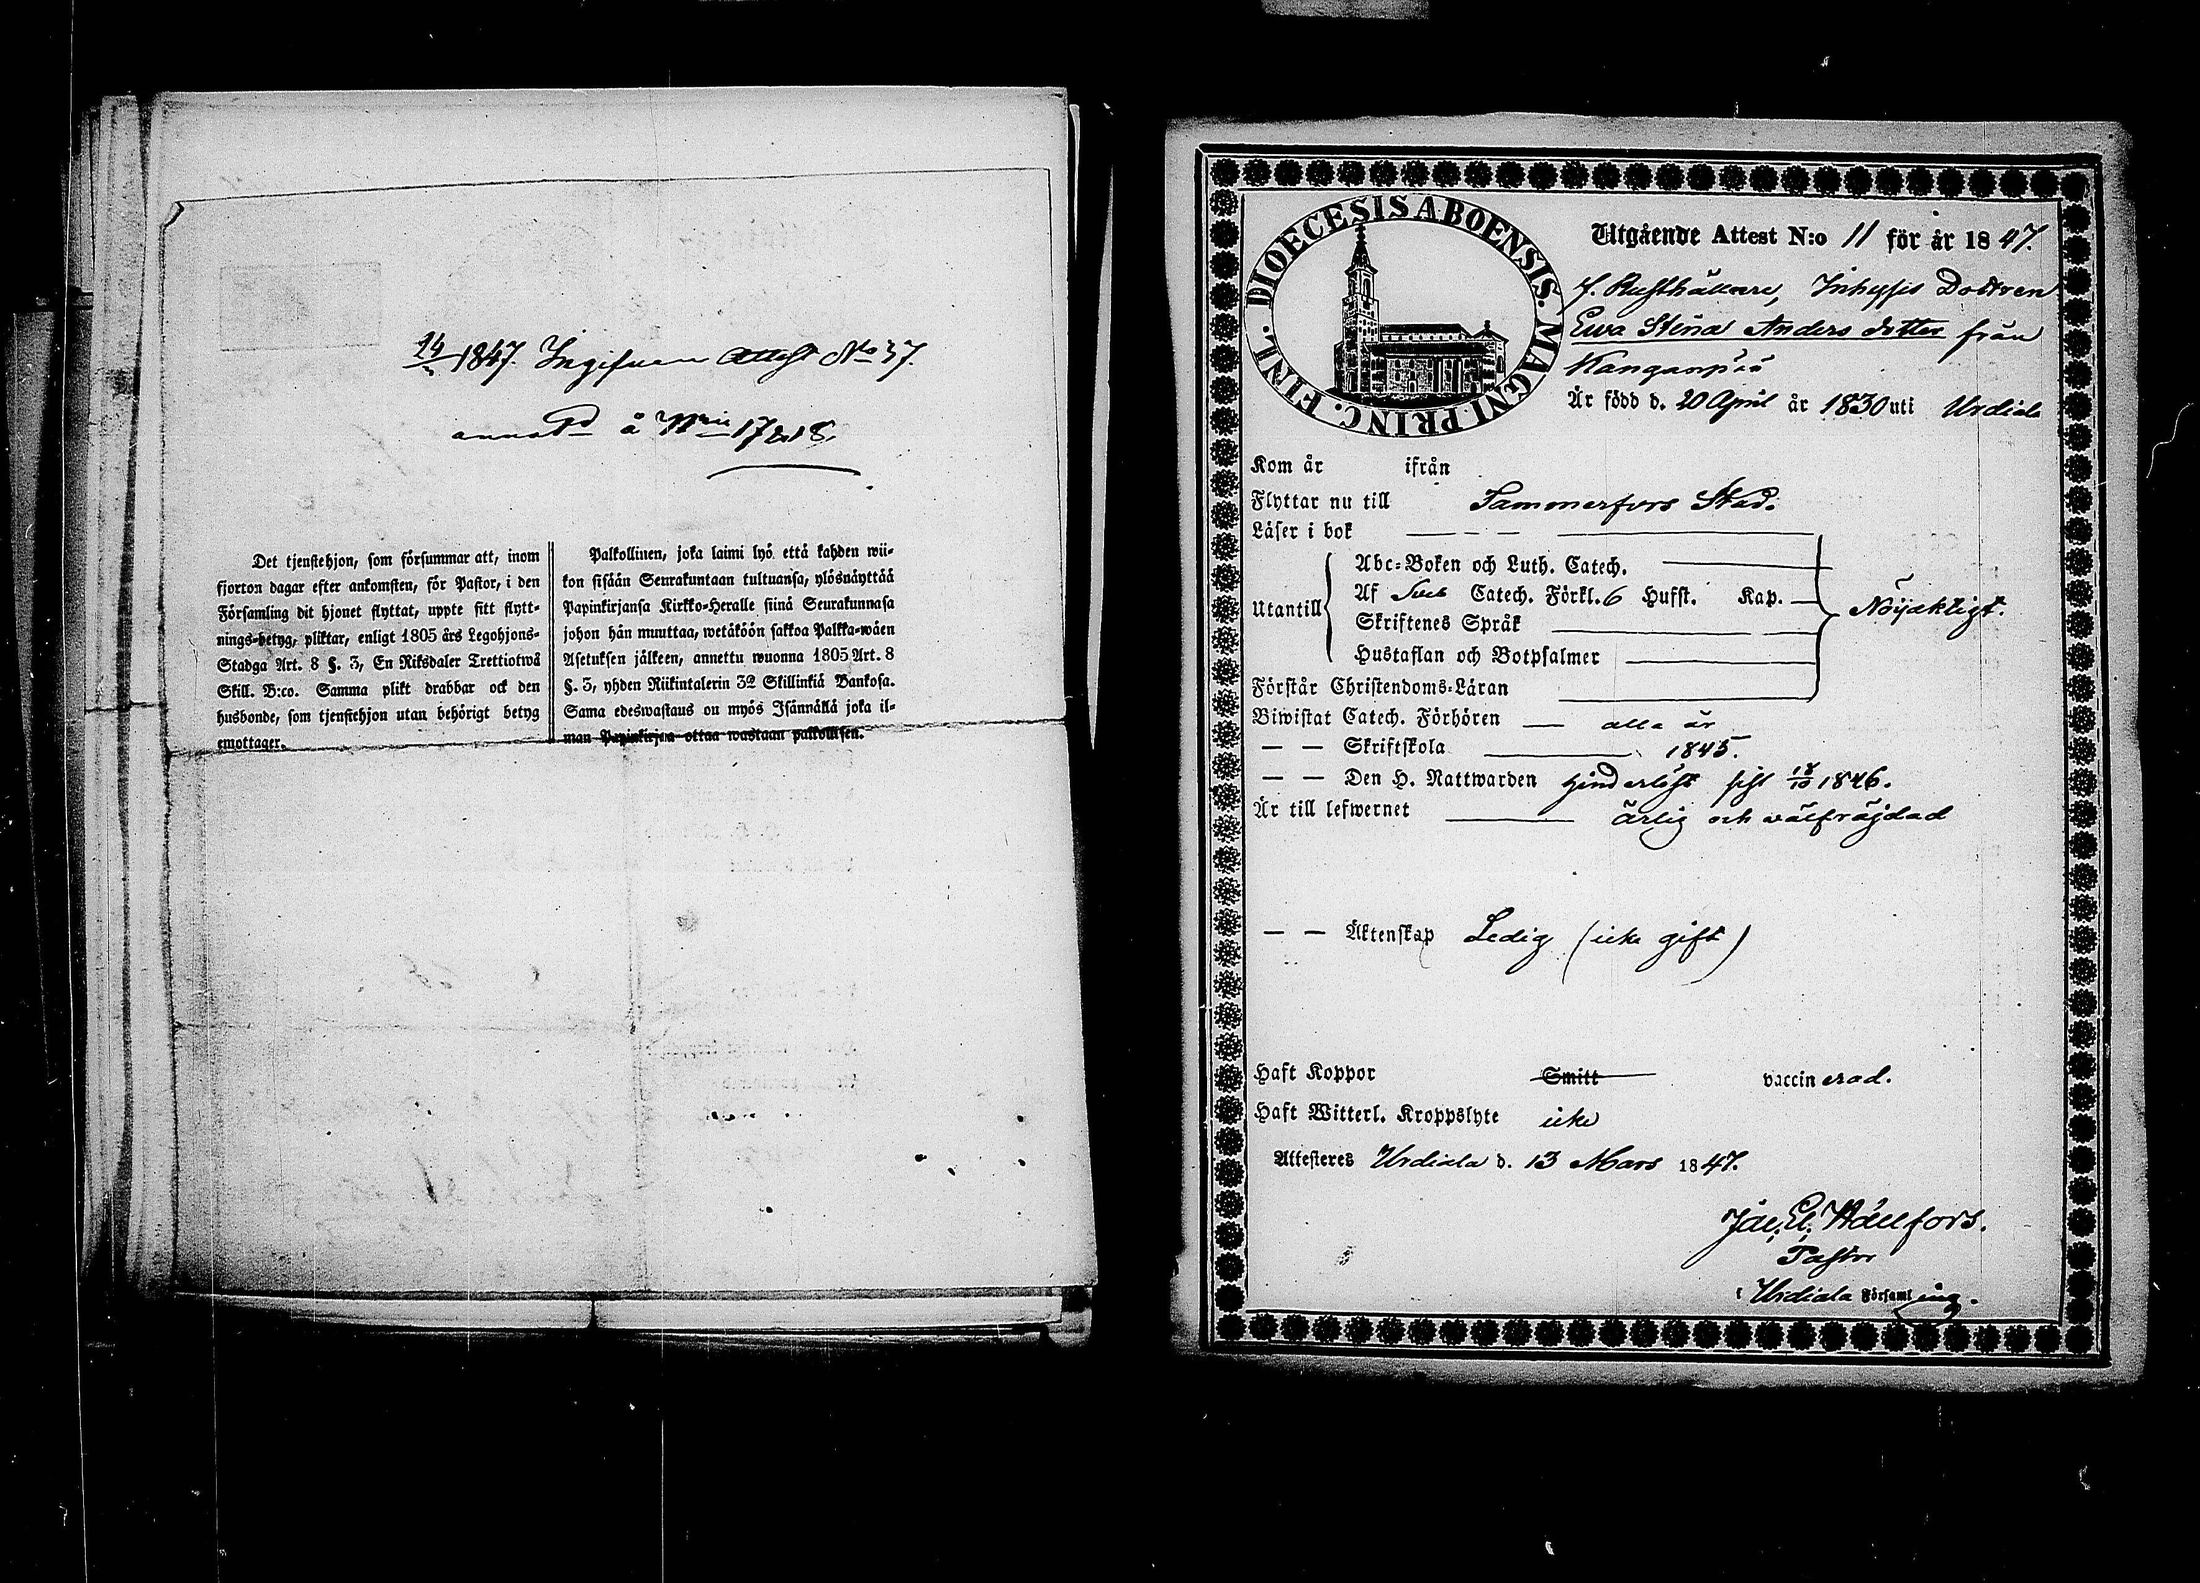 14/5 1847. Ingifven Attest No 37.
annot. å N:ris 17 & 18.
Det tjenstehjon, som försummar att, inom
fjorton dagar efter ankomsten, för Pastor, i den
Församling dit hjonet flyttat, uppte sitt flytt-
nings-betyg, pliktar, enligt 1805 års Legohjons-
Stadga Art. 8 §. 3, En Riksdaler Trettiotwå
Skill. B:co. Samma plikt drabbar ock den
husbonde, som tjenstehjon utan behörigt betyg
emottager.
Palkollinen, joka laimi lyö että kahden wii-
kon sisään Seurakuntaan tultuansa, ylösnäyttää
Papinkirjansa Kirkko-Heralle siinä Seurakunnasa
johon hän muuttaa, wetäköön sakkoa Palkka-wäen
Asetuksen jälkeen, annettu wuonna 1805 Art. 8
§. 3, yhden Riikintalerin 32 Skillinkiä Bankosa.
Sama edeswastaus on myös Isännällä joka il-
man Papinkirjaa ottaa wastaan palkollisen.
DIOECESIS ABOENSIS. MAGNI. PRINC. FINL.
Utgående Attest N:o 11 för år 1847.
f. Rusthållare, Inhyses Dottren
Ewa Stina Anders dotter från
Kangaspää
Är född d. 20 April år 1830 uti Urdiala
Kom år ifrån
Flyttar nu till Tammerfors Stad.
Läser i bok
Utantill
Abc-Boken och Luth. Catech.
Af Sveb Catech. Förkl. 6 Hufst. Kap. Nöjaktigt.
Skriftenes Språk
Hustaflan och Botpsalmer
Förstår Christendoms-Läran
Biwistat Catech. Förhören alla år
— — Skriftskola 1845.
— — Den H. Nattwarden hinderlöst sist 18/10 1846.
Är till lefwernet ärlig och välfräjdad
— — Äktenskap Ledig (icke gift)
Haft Koppor Smitt vaccinerad.
Haft Witterl. Kroppslyte icke
Attesteres Urdiala d. 13 Mars 1847.
Hällfors.
Pastor
i Urdiala Församling.